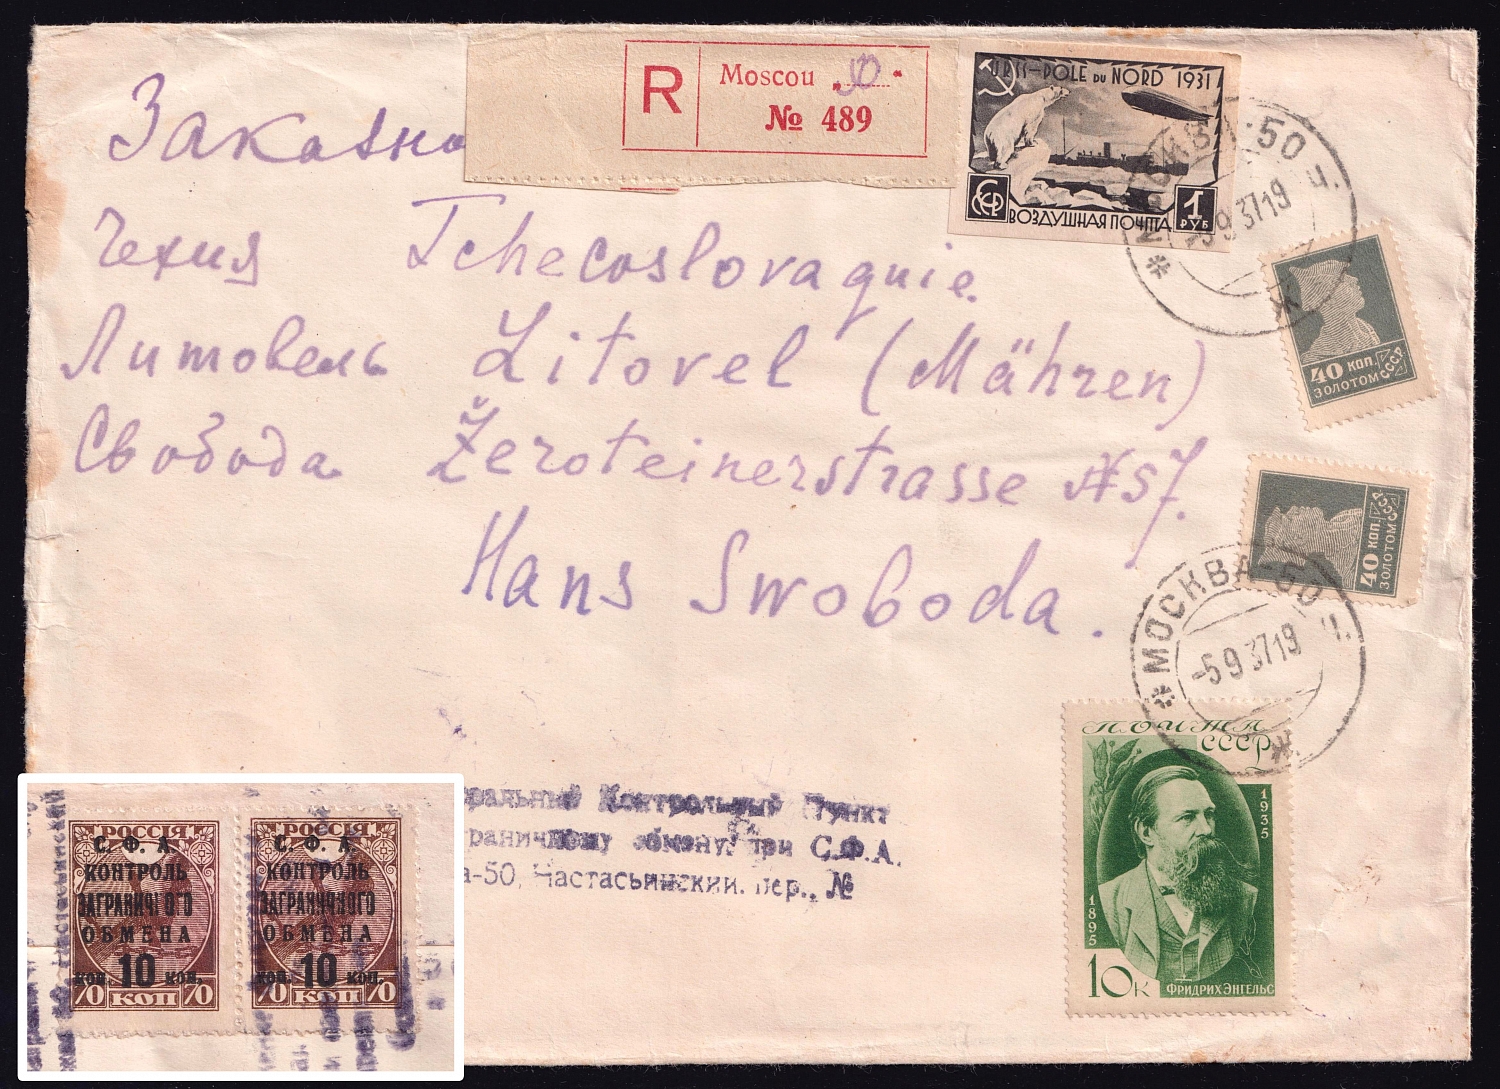 Заказно
R
Moscou „50“
№ 489
URSS-POLE DU NORD 1931
СССР
ВОЗДУШНАЯ ПОЧТА
1 РУБ
МОСКВА-50 Ч.
-5 9 37 19
Ж
Чехия Tchecoslovaquie.
Литовель Litovel (Mähren)
Свобода Žeroteinerstrasse № 57.
Hans Swoboda.
40 КОП.
ЗОЛОТОМ
СССР
40 КОП.
ЗОЛОТОМ
СССР
МОСКВА-50 Ч.
-5 9 37 19
Ж
ПОЧТА
СССР
1935
1895
10К
ФРИДРИХ ЭНГЕЛЬС
Контрольный Пункт
обмену при С.Ф.А.
а-50, Настасьинский. пер., №
РОССІЯ
С. Ф. А.
КОНТРОЛЬ
ЗАГРАНИЧНОГО
ОБМЕНА
коп. 10 коп.
70 КОП 70
РОССІЯ
С. Ф. А.
КОНТРОЛЬ
ЗАГРАНИЧНОГО
ОБМЕНА
коп. 10 коп.
70 КОП 70